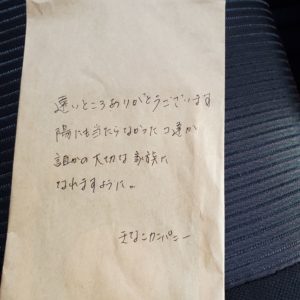 遠いところありがとうございます
陽にも当たらなかったコ達が
誰かの大切な家族に
なれますように。
きなこカンパニー